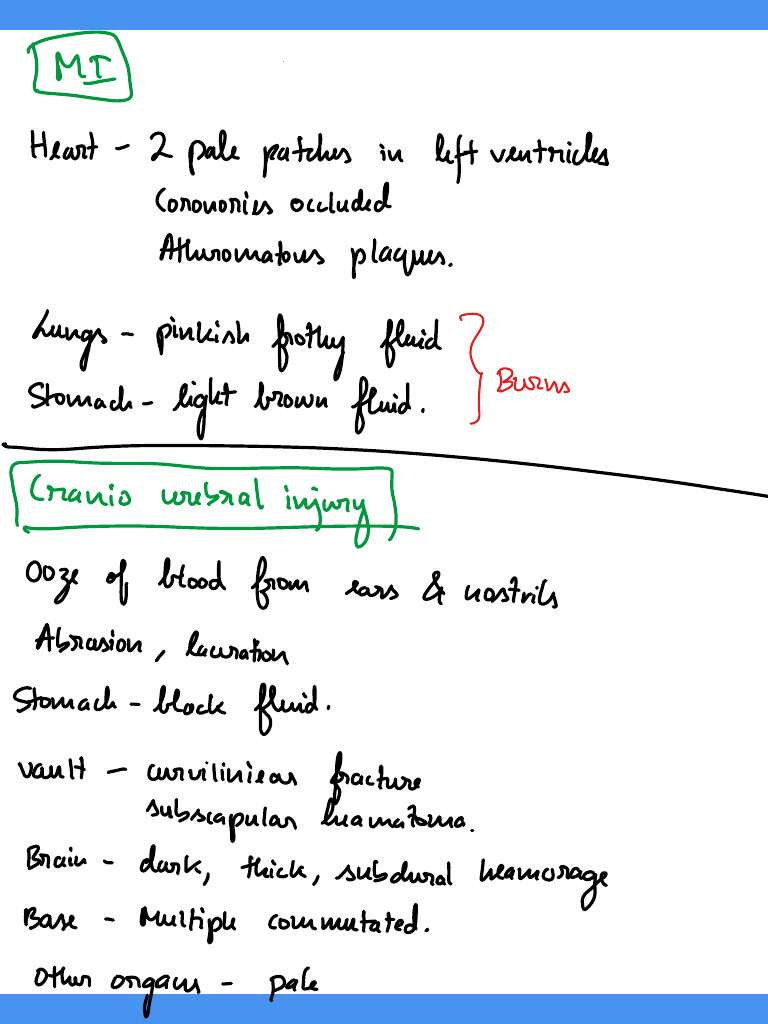 MI
Heart - 2 pale patches in left ventricles
Coronories occluded
Atheromatous plaques.
Lungs - pinkish frothy fluid
Stomach - light brown fluid.
Burns
Cranio cerebral injury
Ooze of blood from ears & nostrils
Abrasion, laceration
Stomach - black fluid.
vault - curviliniear fracture
subscapular heamatoma.
Brain - dark, thick, subdural heamorage
Base - Multiple commutated.
Other organs - pale